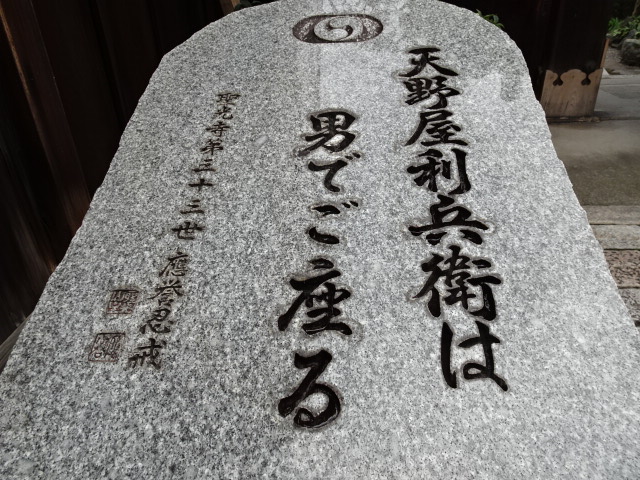 天野屋利兵衛は
男でご座る
聖光寺第三十三世 應誉忍戒